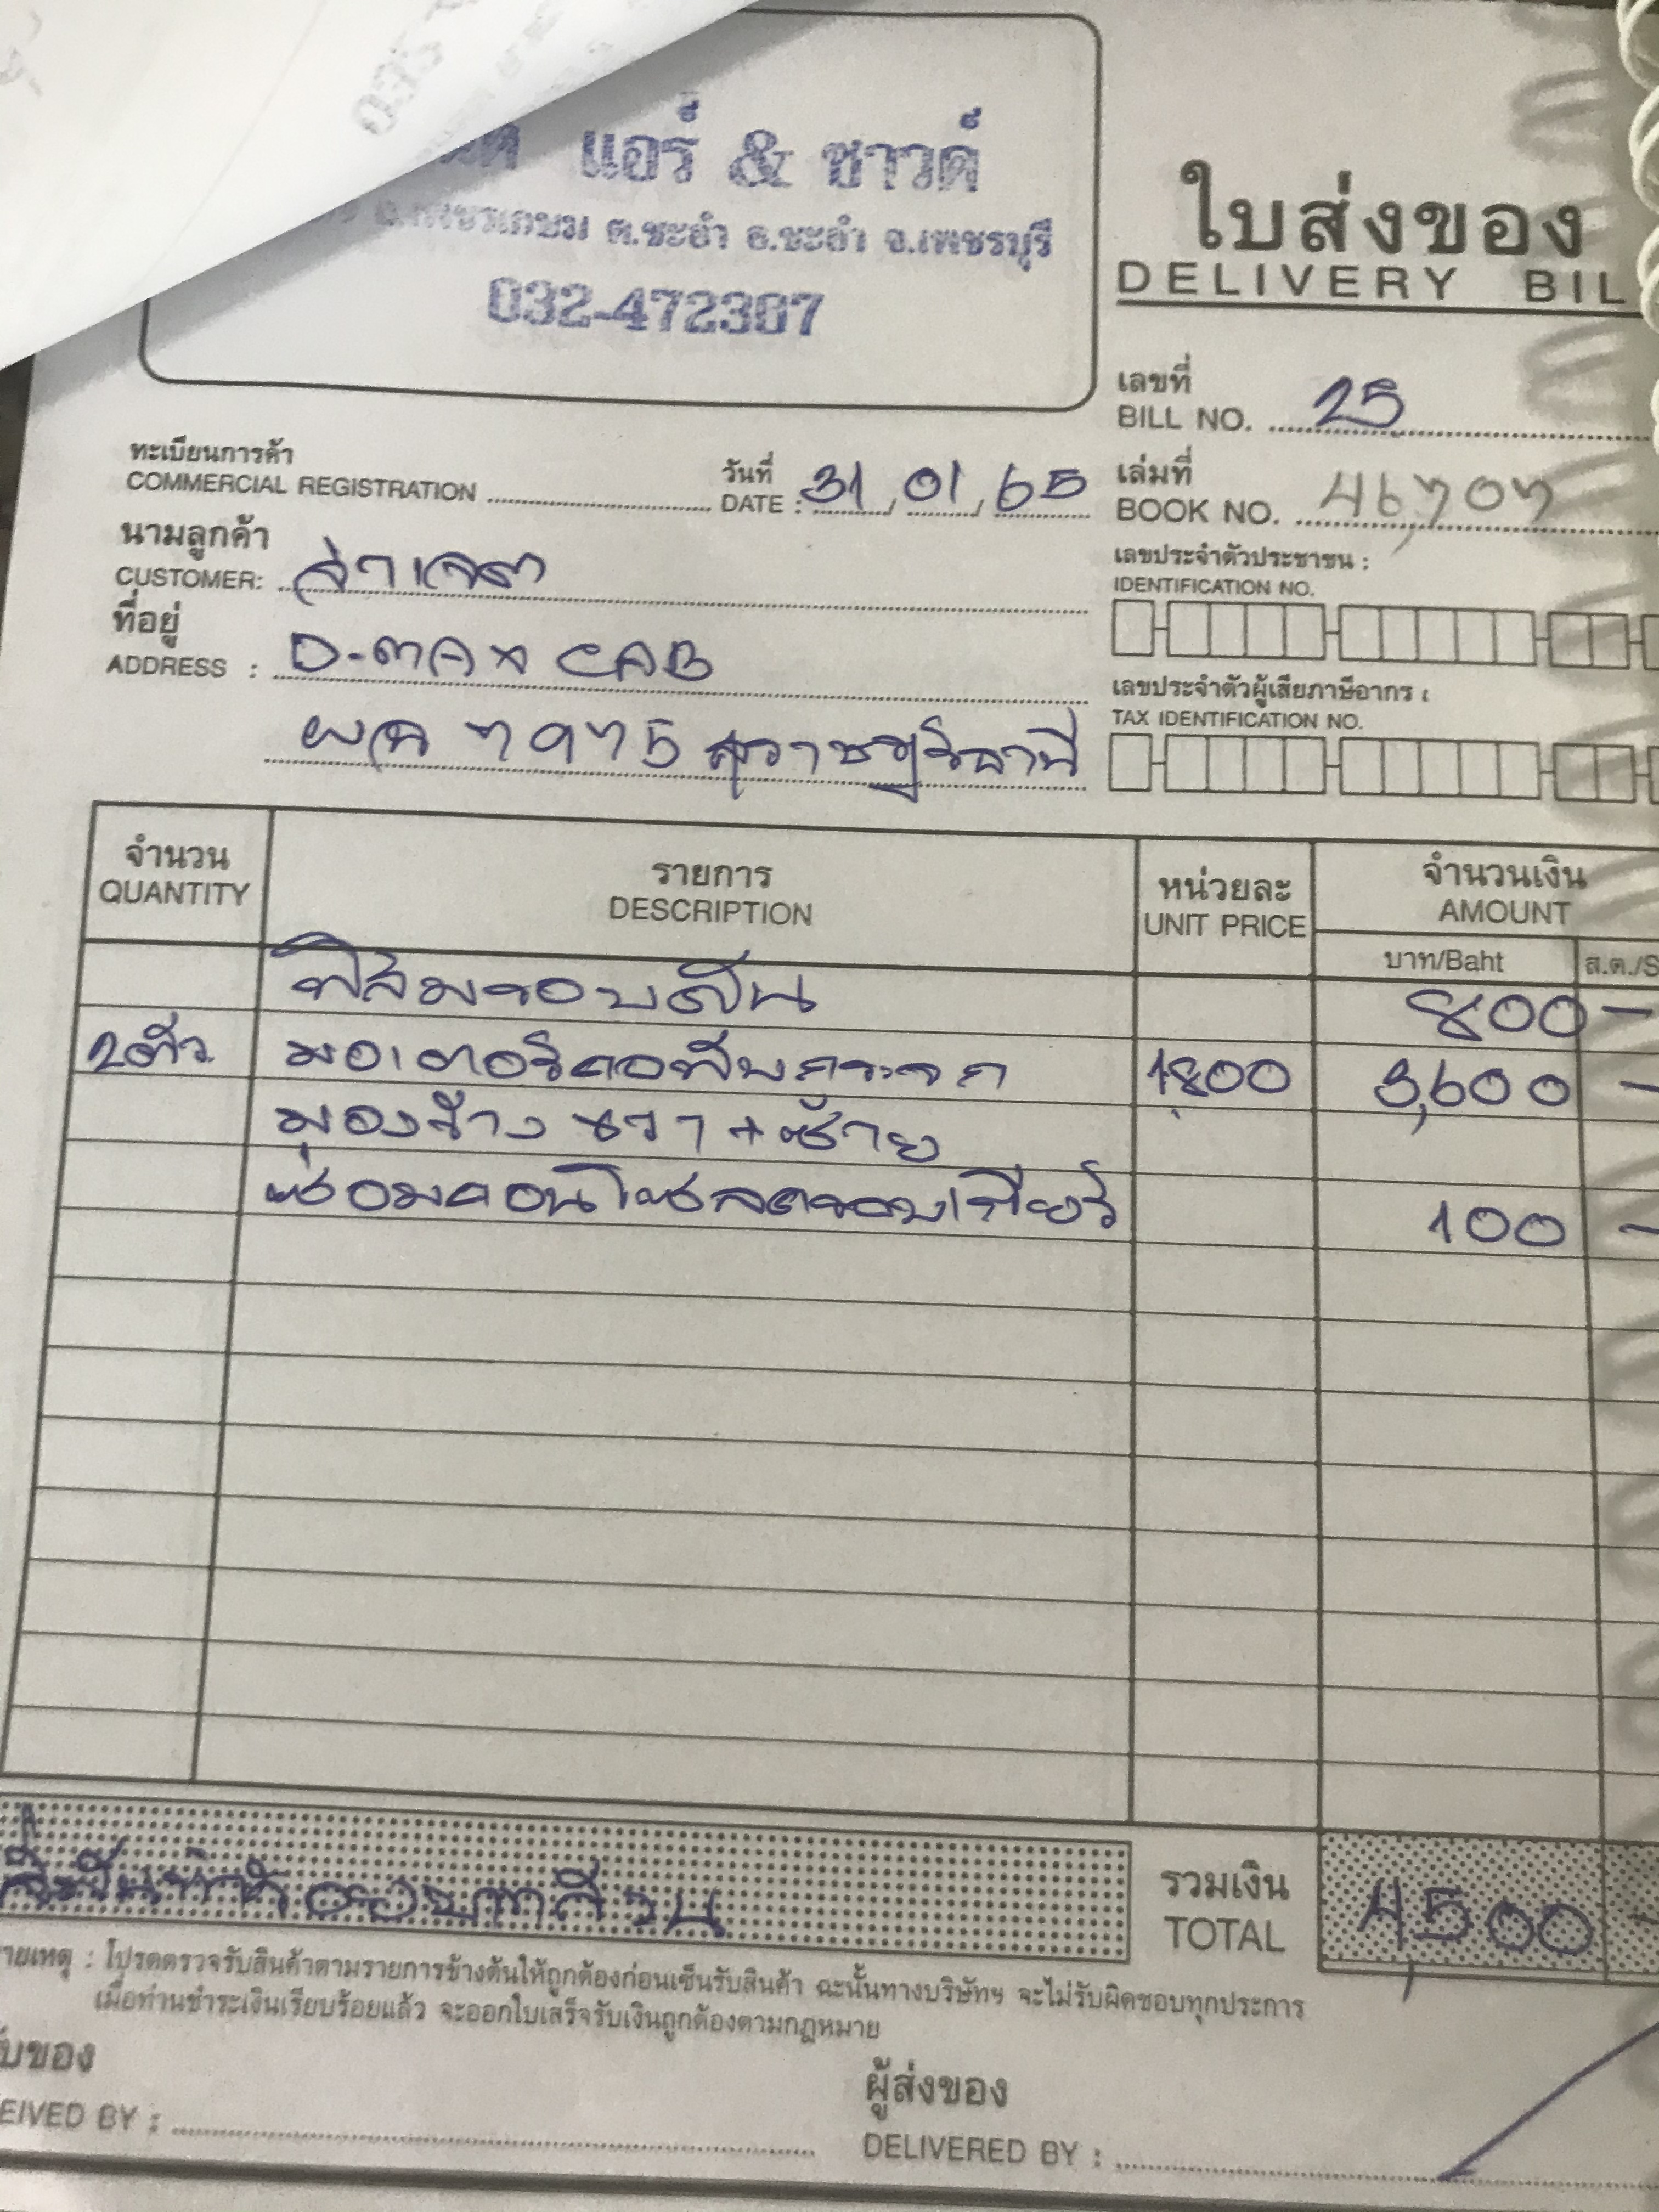 แอร์ & ซาวด์
ถ.เพชรเกษม ต.ชะอำ อ.ชะอำ จ.เพชรบุรี
032-472307
ใบส่งของ
DELIVERY BIL
เลขที่
BILL NO. 25
ทะเบียนการค้า
COMMERCIAL REGISTRATION
วันที่
DATE : 31, 01, 65
เล่มที่
BOOK NO. 46,707
นามลูกค้า
CUSTOMER:
เลขประจำตัวประชาชน :
IDENTIFICATION NO.
ที่อยู่
ADDRESS : D-MAX CAB
เลขประจำตัวผู้เสียภาษีอากร :
TAX IDENTIFICATION NO.
7975 สุราษฎร์ธานี
จำนวน
QUANTITY
รายการ
DESCRIPTION
หน่วยละ
UNIT PRICE
จำนวนเงิน
AMOUNT
บาท/Baht
ส.ต./S
ฟิล์มรอบคัน 800 -
2ตัว มอเตอร์คอพับกระจก 1,800 3,600 -
มองข้าง ขวา + ซ้าย
ซ่อมคอนโซลครอบเกียร์ 100 -
รวมเงิน
TOTAL 4,500 -
ายเหตุ : โปรดตรวจรับสินค้าตามรายการข้างต้นให้ถูกต้องก่อนเซ็นรับสินค้า ฉะนั้นทางบริษัทฯ จะไม่รับผิดชอบทุกประการ
เมื่อท่านชำระเงินเรียบร้อยแล้ว จะออกใบเสร็จรับเงินถูกต้องตามกฎหมาย
ับของ
EIVED BY :
ผู้ส่งของ
DELIVERED BY :